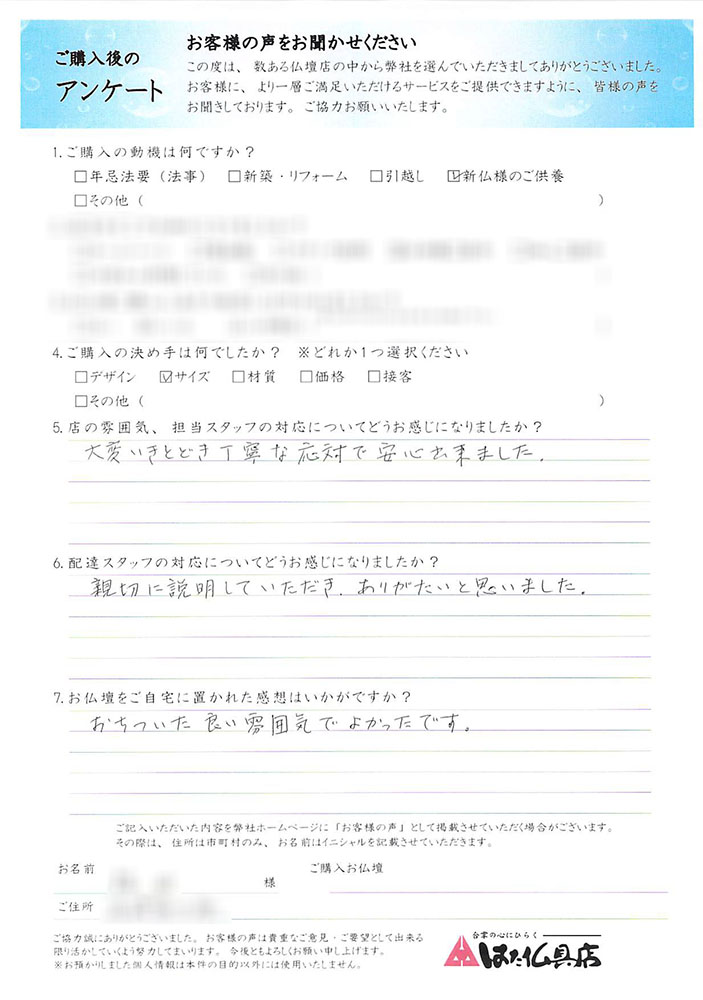 ご購入後の
アンケート
お客様の声をお聞かせください
この度は、数ある仏壇店の中から弊社を選んでいただきましてありがとうございました。
お客様に、より一層ご満足いただけるサービスをご提供できますように、皆様の声を
お聞きしております。ご協力お願いいたします。
1.ご購入の動機は何ですか？
□年忌法要（法事） □新築・リフォーム □引越し ☑新仏様のご供養
□その他（ ）
4.ご購入の決め手は何でしたか？ ※どれか1つ選択ください
□デザイン ☑サイズ □材質 □価格 □接客
□その他（ ）
5.店の雰囲気、担当スタッフの対応についてどうお感じになりましたか？
大変いきとどき丁寧な応対で安心出来ました.
6.配達スタッフの対応についてどうお感じになりましたか？
親切に説明していただき、ありがたいと思いました.
7.お仏壇をご自宅に置かれた感想はいかがですか？
おちついた良い雰囲気でよかったです。
ご記入いただいた内容を弊社ホームページに「お客様の声」として掲載させていただく場合がございます。
その際は、住所は市町村のみ、お名前はイニシャルを記載させていただきます。
お名前 様 ご購入お仏壇
ご住所
ご協力誠にありがとうございました。お客様の声は貴重なご意見・ご要望として出来る
限り活かしていくよう努力してまいります。今後ともよろしくお願い申し上げます。
※お預かりしました個人情報は本件の目的以外には使用いたしません。
合掌の心にひらく
はた仏具店